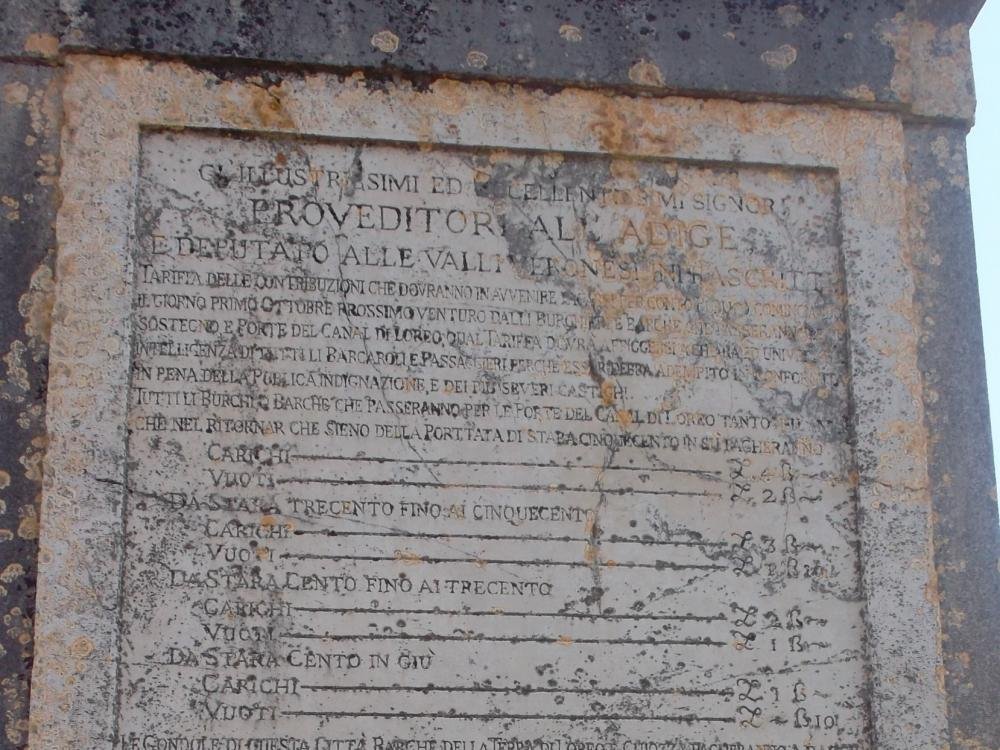 GL' ILLUSTRISSIMI ED ECCELLENTISSIMI SIGNORI
PROVEDITORI ALL' ADIGE
E DEPUTATO ALLE VALLI VERONESI INFRASCRITTI
TARIFFA DELLE CONTRIBUZIONI CHE DOVRANNO IN AVVENIRE PER CONTO PUBLICO COMINCIAR
IL GIORNO PRIMO OTTOBRE PROSSIMO VENTURO DALLI BURCHI E BARCHE CHE PASSERANNO
SOSTEGNO E PORTE DEL CANAL DI LOREO, QUAL TARIFFA DOVRA AFFIGGERSI A CHIARA ED UNIVERSAL
INTELLIGENZA DI TUTTI LI BARCAROLI E PASSAGIERI PERCHE ESSER DEBBA ADEMPITO IN CONFORMITA
IN PENA DELLA PUBLICA INDIGNAZIONE, E DEI PIU SEVERI CASTIGHI
TUTTI LI BURCHI, E BARCHE CHE PASSERANNO PER LE PORTE DEL CANAL DI LOREO TANTO
CHE NEL RITORNAR CHE SIENO DELLA PORTTATA DI STARA CINQUECENTO IN SU PAGHERANNO
CARICHI L 4 ß ~
VUOTI L 2 ß ~
DA STARA TRECENTO FINO AI CINQUECENTO
CARICHI L 3 ß ~
VUOTI L 1 ß 10
DA STARA CENTO FINO AI TRECENTO
CARICHI L 2 ß ~
VUOTI L 1 ß ~
DA STARA CENTO IN GIÙ
CARICHI L 1 ß ~
VUOTI L ~ ß 10
LE GONDOLE DI QUESTA CITTÀ BARCHE DELLA TERRA DI LOREO E CHIOZZA PAGHERANNO